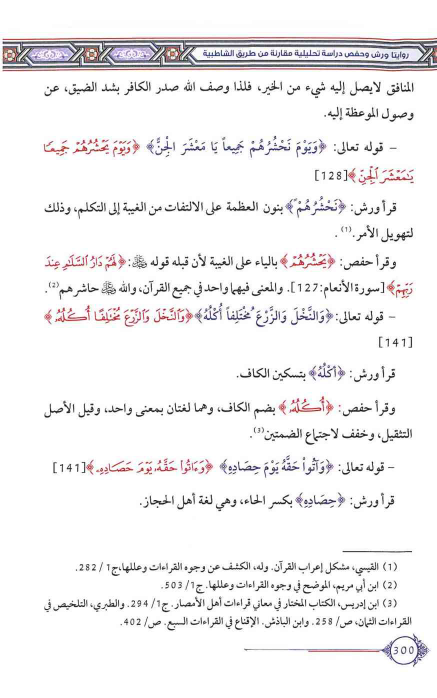 روايتا ورش وحفص دراسة تحليلية مقارنة من طريق الشاطبية
المنافق لايصل إليه شيء من الخير، فلذا وصف الله صدر الكافر بشد الضيق، عن
وصول الموعظة إليه.
– قوله تعالى: ﴿وَيَوْمَ نَحْشُرُهُمْ جَمِيعاً يَا مَعْشَرَ الْجِنِّ﴾ ﴿وَيَوْمَ يَحْشُرُهُمْ جَمِيعًا
يَٰمَعْشَرَ ٱلْجِنِّ﴾[128]
قرأ ورش: ﴿نَحْشُرُهُمْ﴾ بنون العظمة على الالتفات من الغيبة إلى التكلم، وذلك
لتهويل الأمر.(1).
وقرأ حفص: ﴿يَحْشُرُهُمْ﴾ بالياء على الغيبة لأن قبله قوله ﷻ:﴿لَهُمْ دَارُ ٱلسَّلَٰمِ عِندَ
رَبِّهِمْ﴾[سورة الأنعام:127]. والمعنى فيهما واحد في جميع القرآن، والله ﷻ حاشرهم(2).
– قوله تعالى:﴿وَالنَّخْلَ وَالزَّرْعَ مُخْتَلِفاً أُكْلُهُ﴾﴿وَٱلنَّخْلَ وَٱلزَّرْعَ مُخْتَلِفًا أُكُلُهُۥ﴾
[141]
قرأ ورش: ﴿أُكْلُهُ﴾ بتسكين الكاف.
وقرأ حفص: ﴿أُكُلُهُۥ﴾ بضم الكاف، وهما لغتان بمعنى واحد، وقيل الأصل
التثقيل، وخفف لاجتماع الضمتين(3).
– قوله تعالى: ﴿وَآتُواْ حَقَّهُ يَوْمَ حِصَادِهِ﴾ ﴿وَءَاتُوا۟ حَقَّهُۥ يَوْمَ حَصَادِهِۦ﴾[141]
قرأ ورش: ﴿حِصَادِهِ﴾ بكسر الحاء، وهي لغة أهل الحجاز.
(1) القيسي، مشكل إعراب القرآن. وله، الكشف عن وجوه القراءات وعللها،ج1/ 282.
(2) ابن أبي مريم، الموضح في وجوه القراءات وعللها. ج1/ 503.
(3) ابن إدريس، الكتاب المختار في معاني قراءات أهل الأمصار. ج1/ 294. والطبري، التلخيص في
القراءات الثمان، ص/ 258. وابن الباذش. الإقناع في القراءات السبع. ص/ 402.
300